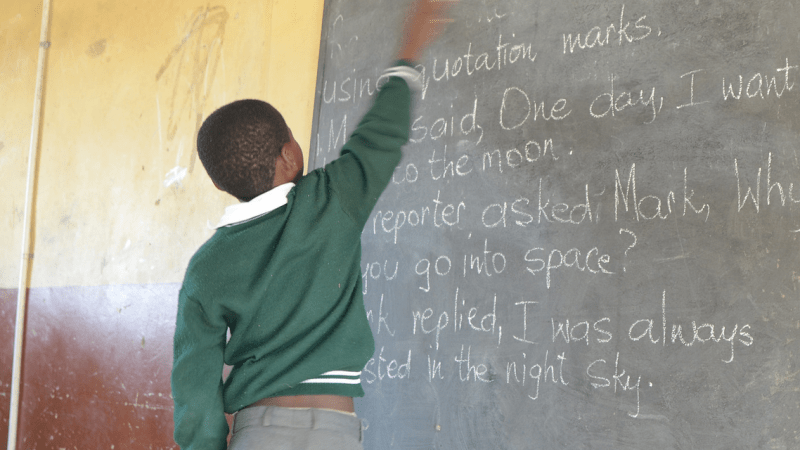 using quotation marks.
said, One day, I want
to the moon.
reporter asked. Mark, Why
you go into space?
replied, I was always
in the night sky.